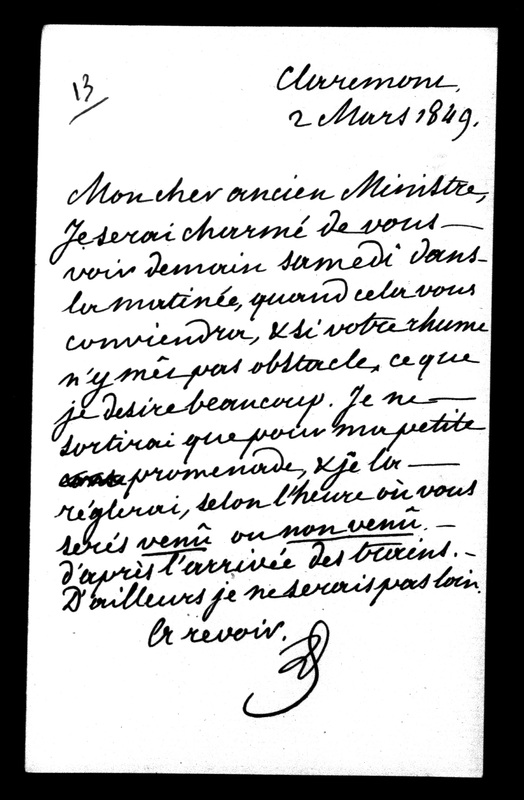 13
Claremont,
2 Mars 1849.
Mon cher ancien Ministre,
Je serai charmé de vous —
voir demain samedi dans
la matinée, quand cela vous
conviendra, & si votre rhume
n'y mêt pas obstacle, ce que
je desire beaucoup. Je ne —
sortirai que pour ma petite
promenade, & je la —
réglerai, selon l'heure où vous
serés venû ou non venû. —
d'après l'arrivée des trains. —
D'ailleurs je ne serais pas loin.
Ce revoir.